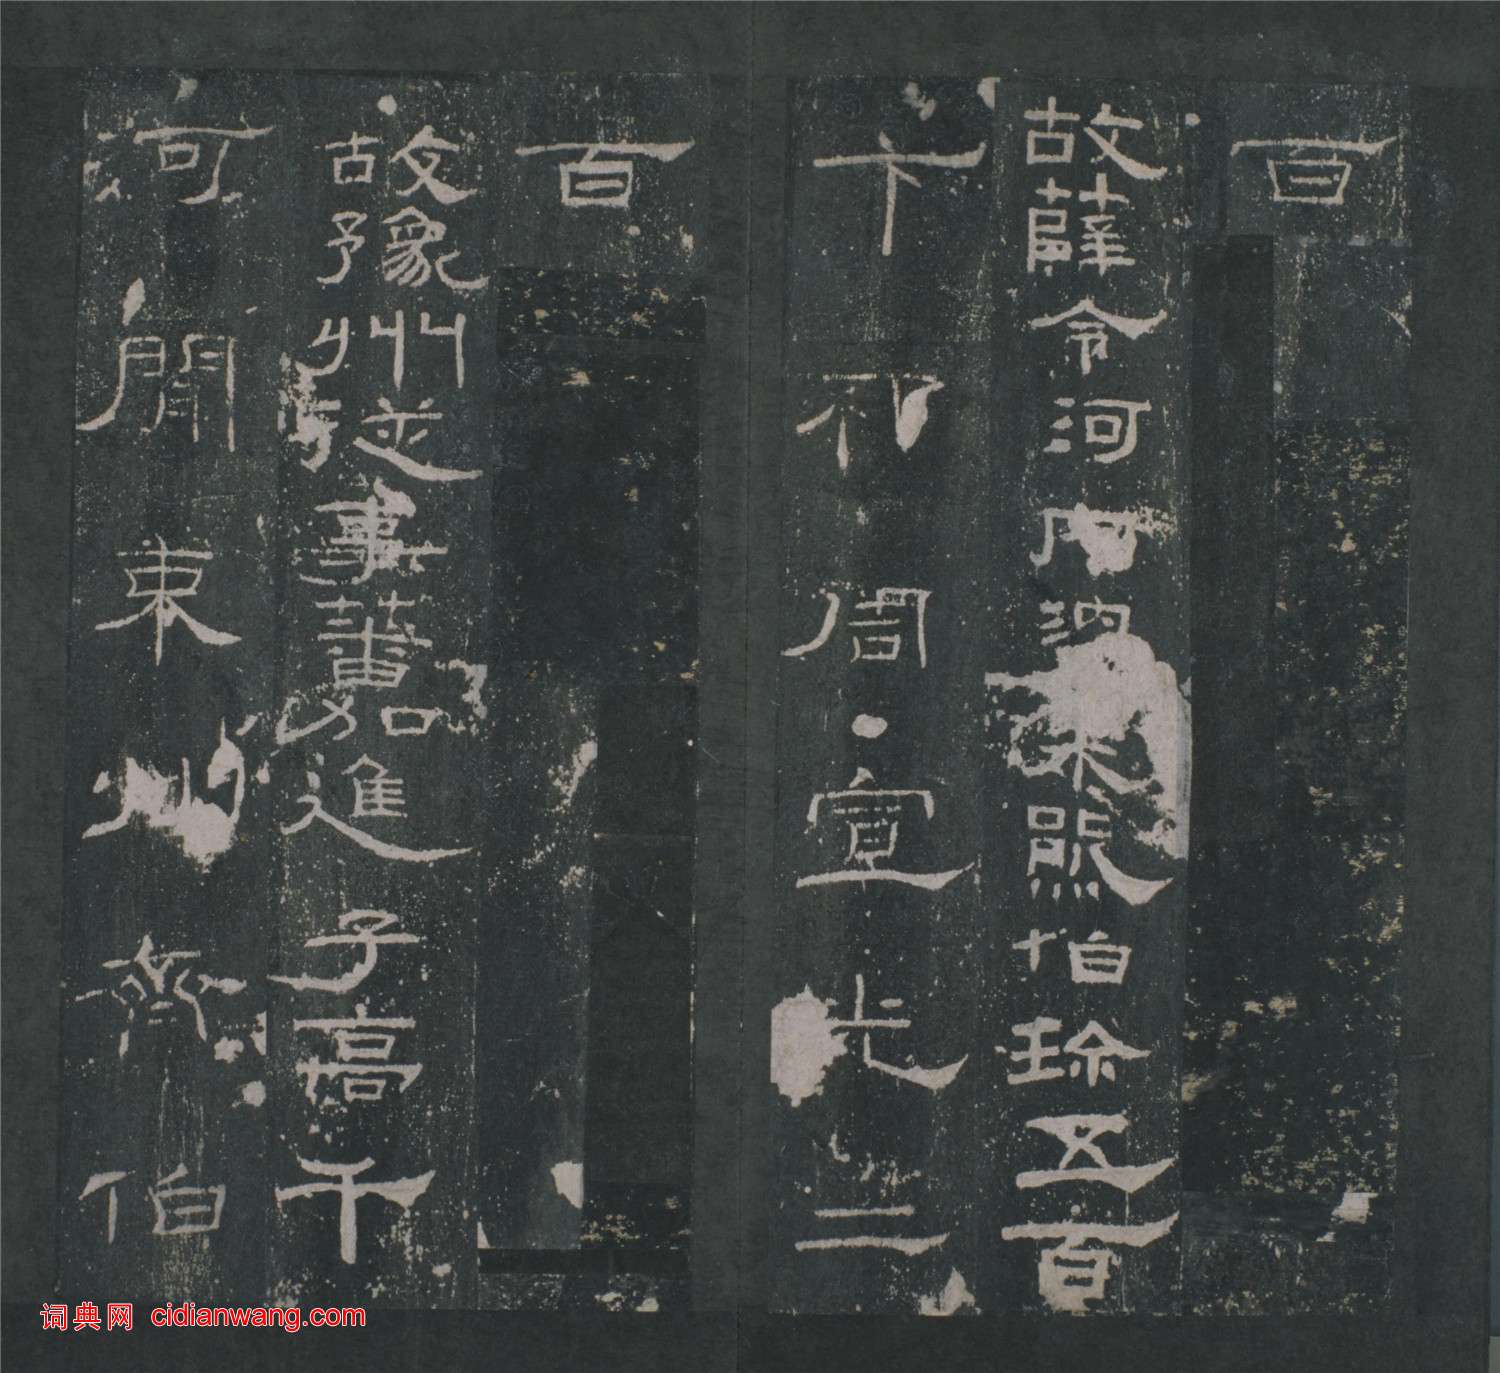 百
故薛令河內溫朱熊伯珍五百
下邳周宣光二
百
故豫州從事蕃加進子高千
河間束州齊伯
词典网 cidianwang.com